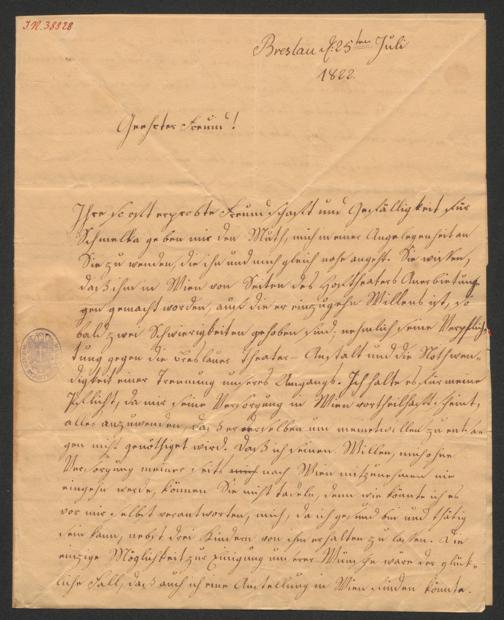 I.N. 38828
Breslau d. 25ten Juli
1822
Geehrter Freund!
Ihre so oft erprobte Freundschaft und Gefälligkeit für
Schmelka geben mir den Muth, mich in einer Angelegenheit an
Sie zu wenden, die ihn und mich gleich nahe angeht. Sie wissen,
daß ihm in Wien von Seiten des Hoftheaters Anerbietun-
gen gemacht worden, auf die er einzugehn Willens ist, so
bald zwei Schwierigkeiten gehoben sind. nehmlich seine Verpflich-
tung gegen die Breslauer Theater-Anstalt und die Nothwen-
digkeit einer Trennung unseres Umgangs. Ich halte es für meine
Pflicht, da mir seine Versorgung in Wien vortheilhaft scheint,
alles anzuwenden, daß er derselben um meinetwillen zu entsa-
gen nicht genöthiget wird. Daß ich seinen Willen, mich ohne
Versorgung meiner seits nach Wien mitzunehmen nie
eingehn werde, können Sie nicht tadeln, denn wie könnte ich es
vor mir selbst verantworten, mich, da ich gesund bin und thätig
sein kann, nebst drei Kindern von ihm erhalten zu lassen. Die
einzige Möglichkeit zur Einigung unserer Wünsche wäre der glück-
liche Fall, daß auch ich eine Anstellung in Wien finden könnte.